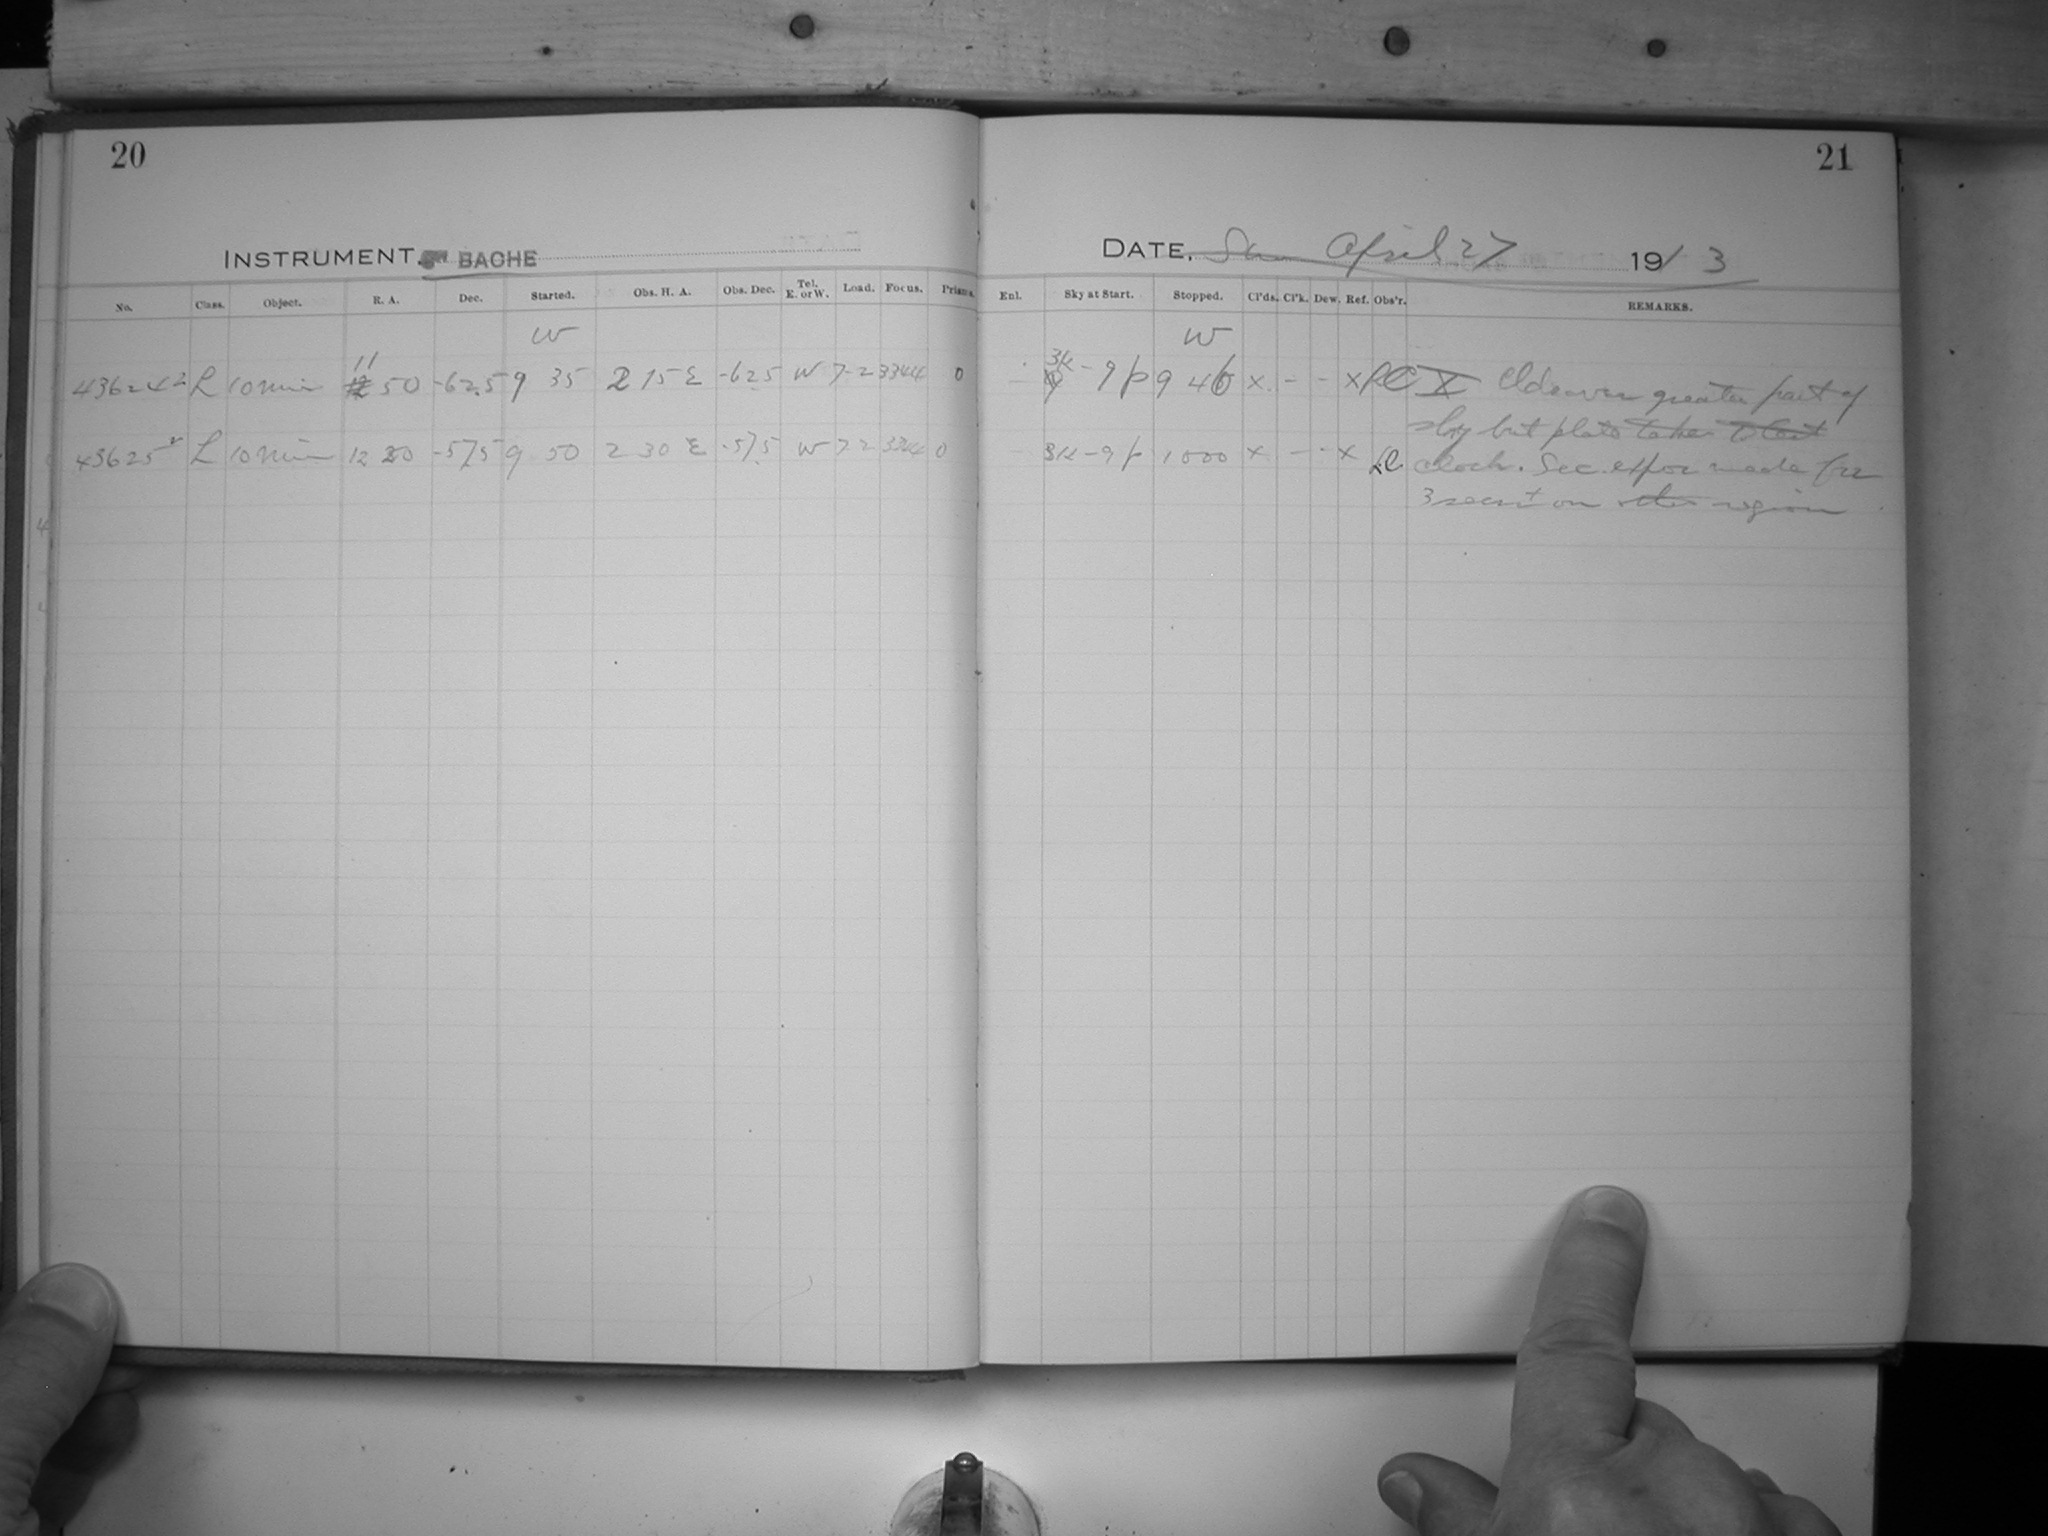 20
21
INSTRUMENT. BACHE
DATE, Sun April 27 1913
No. Class. Object. R. A. Dec. Started. Obs. H. A. Obs. Dec. Tel. E. or W. Load. Focus. Prisms.
Enl. Sky at Start. Stopped. Cl'ds. Cl'k. Dew. Ref. Obs'r. REMARKS.
W W
43624 L 10 min 11 50 -62.5 9 35 2 15 E -62.5 W 7-2 3344 0
- 9 p 9 46 x - - x X greater part of
43625 L 10 min 12 30 -57.5 9 50 2 30 E -57.5 W 7 2 3344 0
- 9 p 10 00 x - - x
sky but plate taken to test
clock. Sec. expos made for
3 secs on other region